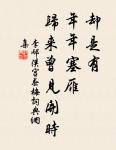 却是有
年年塞雁
歸來曾見開時
李邴漢宮春梅詞典網
集